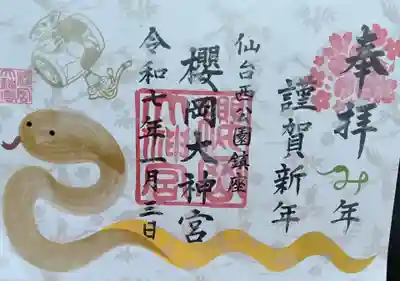 奉拝
み年
謹賀新年
仙台西公園鎮座
櫻岡大神宮
令和七年一月三日